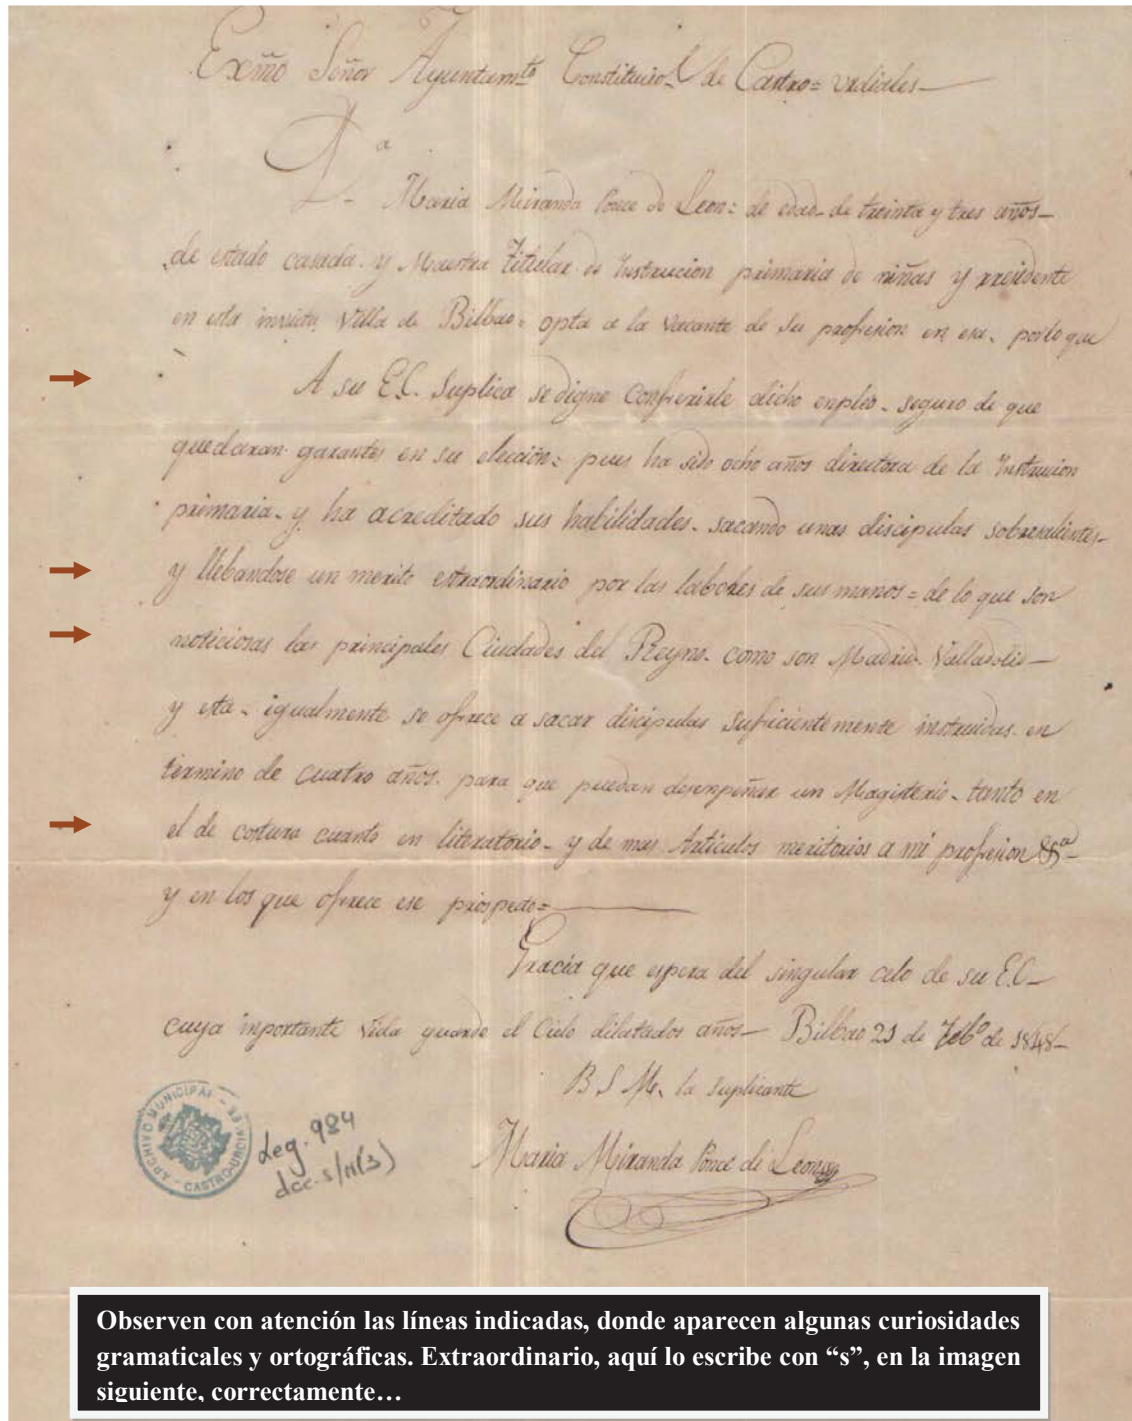 Exmo Señor Ayuntamto Constituciol de Castro=urdiales—
Da
Maria Miranda Ponce de Leon= de edad de treinta y tres años—
de estado casada. y Maestra Titular de Instrucion primaria de niñas y rresidente
en esta invicta Villa de Bilbao= opta a la vacante de su profesion en esa. por lo que
A su E.C. Suplica se digne conferirle dicho enpleo. seguro de que
quedaran garantes en su elección= pues ha sido ocho años directora de la Instrucion
primaria. y ha acreditado sus habilidades. sacando unas discipulas sobresalientes—
y llebandose un merito estraordinario por las labores de sus manos= de lo que son
noticiosas las principales Ciudades del Reyno. como son Madrid. Valladolid—
y esta. igualmente se ofrece a sacar discipulas suficientemente instruidas. en
termino de cuatro años. para que puedan desenpeñar un Magisterio. tanto en
el de costura cuanto en literatorio. y de mas Articulos meritorios a mi profesion &a—
y en los que ofrece ese prospecto=
Gracia que espera del singular celo de su E.C—
cuya inportante vida guarde el Cielo dilatados años— Bilbao 21 de Febo de 1848—
B S M. la suplicante
Maria Miranda Ponce de Leon
ARCHIVO MUNICIPAL - CASTRO-URDIALES
Leg. 984
doc. s/n(3)
Observen con atención las líneas indicadas, donde aparecen algunas curiosidades
gramaticales y ortográficas. Extraordinario, aquí lo escribe con “s”, en la imagen
siguiente, correctamente…